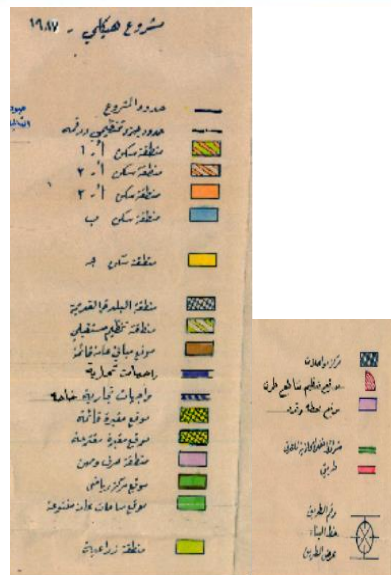 مشروع هيكلي - ١٩٨٧
حدود المشروع
حدود حيز تنظيمي ورقمه
منطقة سكن أ - ١
منطقة سكن أ - ٢
منطقة سكن أ - ٣
منطقة سكن ب
منطقة سكن جـ
منطقة البلدة القديمة
منطقة تنظيم مستقبلي
موقع مباني عامة قائمة
واجهات تجارية
واجهات تجارية خاصة
موقع مقبرة قائمة
موقع مقبرة مقترحة
منطقة حرف ومهن
موقع مركز رياضي
موقع ساحات عامة مفتوحة
منطقة زراعية
مركز مواصلات
موقع تنظيم تقاطع طرق
موقع محطة وقود
طريق
رقم الطريق
خط البناء
عرض الطريق